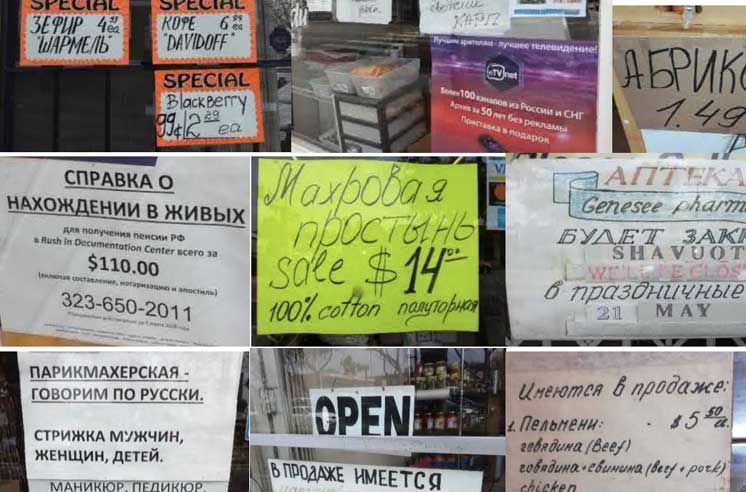 SPECIAL
ЗЕФИР 4 49 ea
"ШАРМЕЛЬ"
SPECIAL
КОФЕ 6 99 ea
"DAVIDOFF"
SPECIAL
BlackBerry
99¢ 2 29 ea
Лучшим зрителям - лучшее телевидение!
eTVnet
Более 100 каналов из России и СНГ
Архив за 50 лет без рекламы
Приставка в подарок
АБРИКО
1.49
СПРАВКА О
НАХОЖДЕНИИ В ЖИВЫХ
для получения пенсии РФ
в Rush In Documentation Center всего за
$110.00
(включая составление, нотаризацию и апостиль)
323-650-2011
Махровая
простынь
sale $14 00
100% cotton полуторная
АПТЕКА
Genesee pharm
БУДЕТ ЗАК
SHAVUOT
WE'LL BE CLOS
в праздничные
21 MAY
ПАРИКМАХЕРСКАЯ -
ГОВОРИМ ПО РУССКИ.
СТРИЖКА МУЖЧИН,
ЖЕНЩИН, ДЕТЕЙ.
МАНИКЮР, ПЕДИКЮР,
OPEN
В ПРОДАЖЕ ИМЕЕТСЯ
Имеются в продаже:
1. Пельмени: - $5 50 ea.
говядина (Beef)
говядина+свинина (beef + pork)
chicken